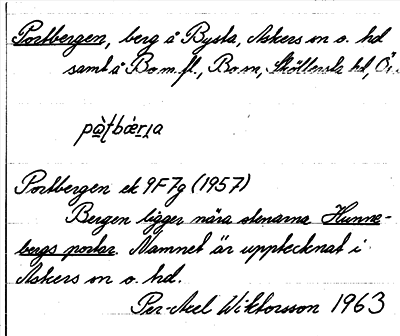 Portbergen, berg å Bysta, Askers sn o. hd
samt å Bo m. fl., Bo sn, Sköllersta hd, Ör.
Portbergen ek 9F7g (1957)
Bergen ligger nära stenarna Hunne-
bergs portar. Namnet är upptecknat i
Askers sn o. hd.
Per-Axel Wiktorsson 1963